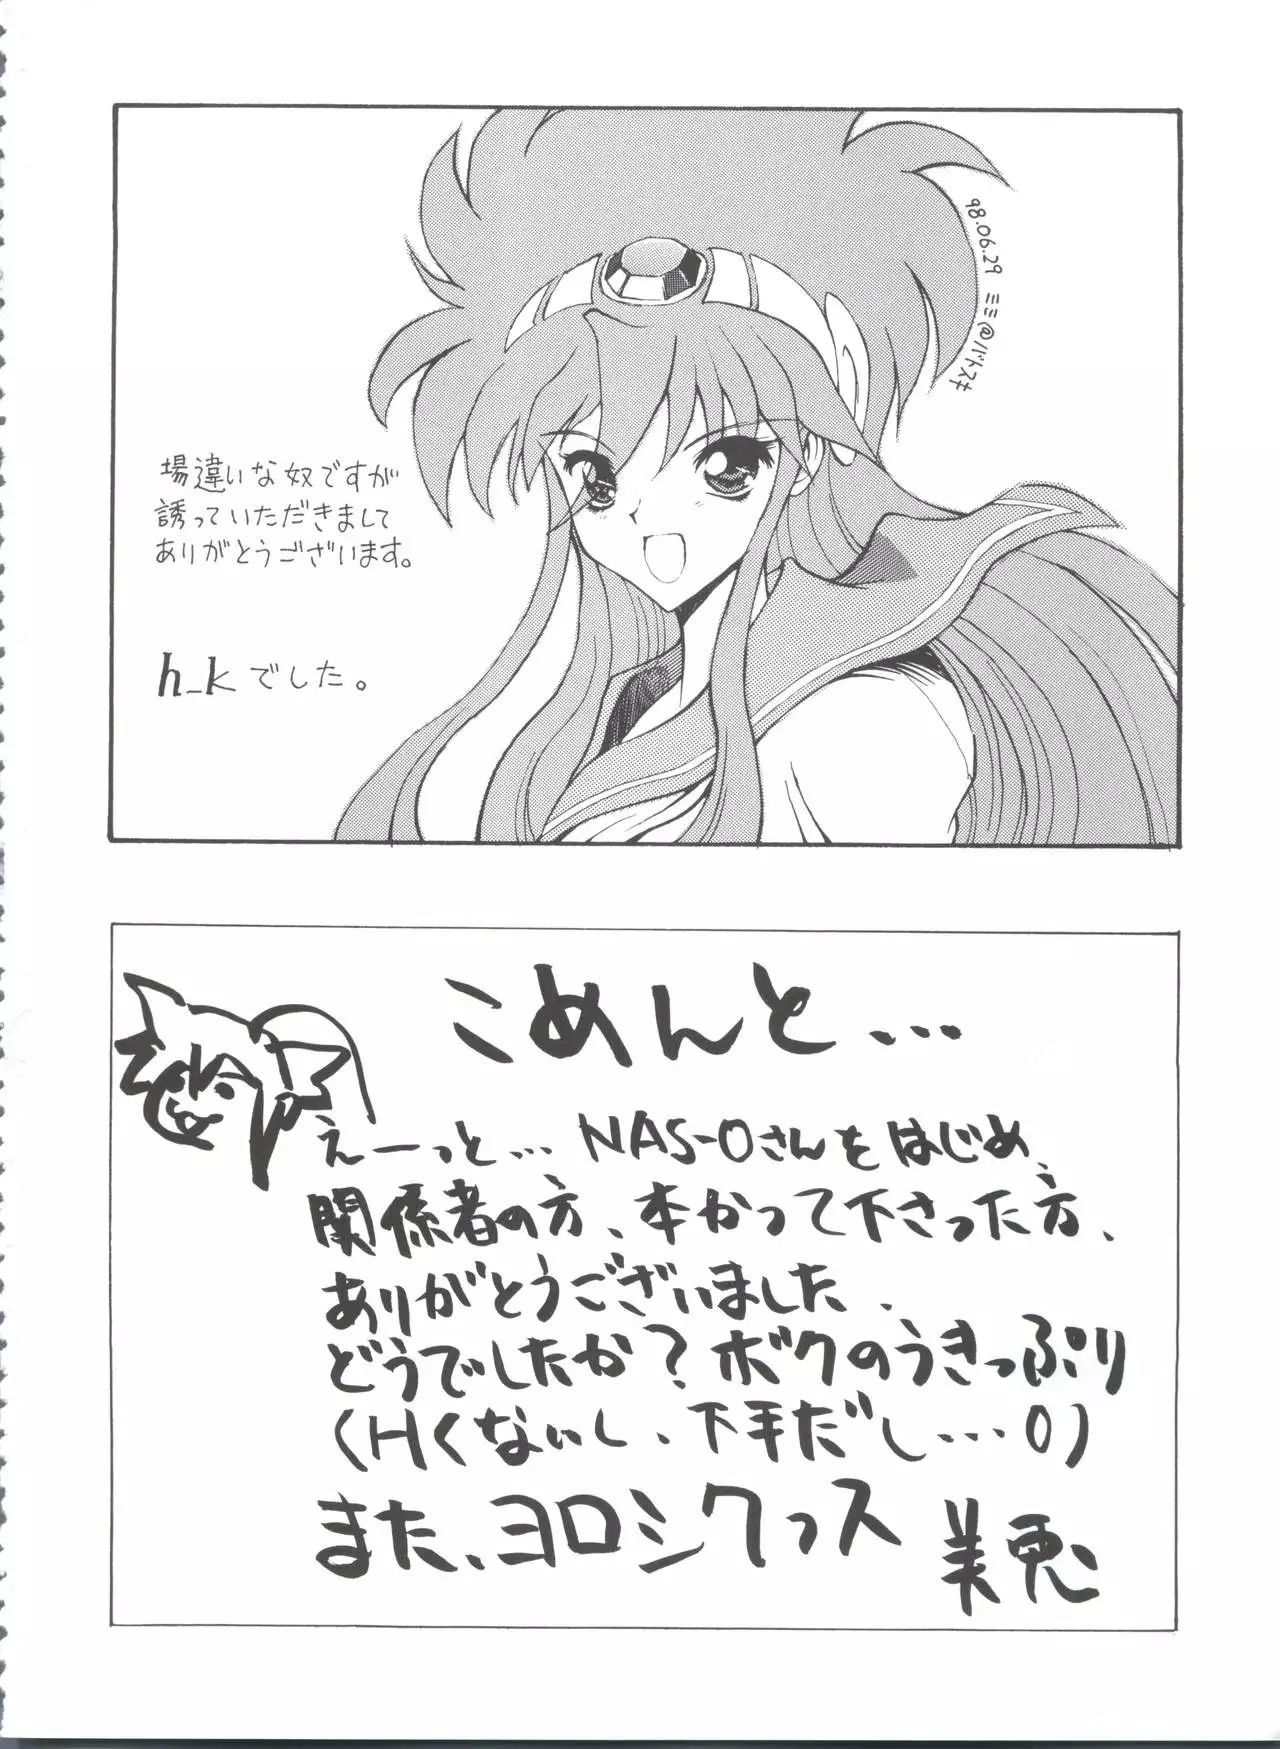 98.06.29 ミミ@バトスキ
場違いな奴ですが
誘っていただきまして
ありがとうございます。
h_kでした。
こめんと…
えーっと… NAS-Oさんをはじめ、
関係者の方、本かって下さった方、
ありがとうございました、
どうでしたか？ボクのうきっぷり
(Hくないし、下手だし…0)
また、ヨロシクっス
美兎